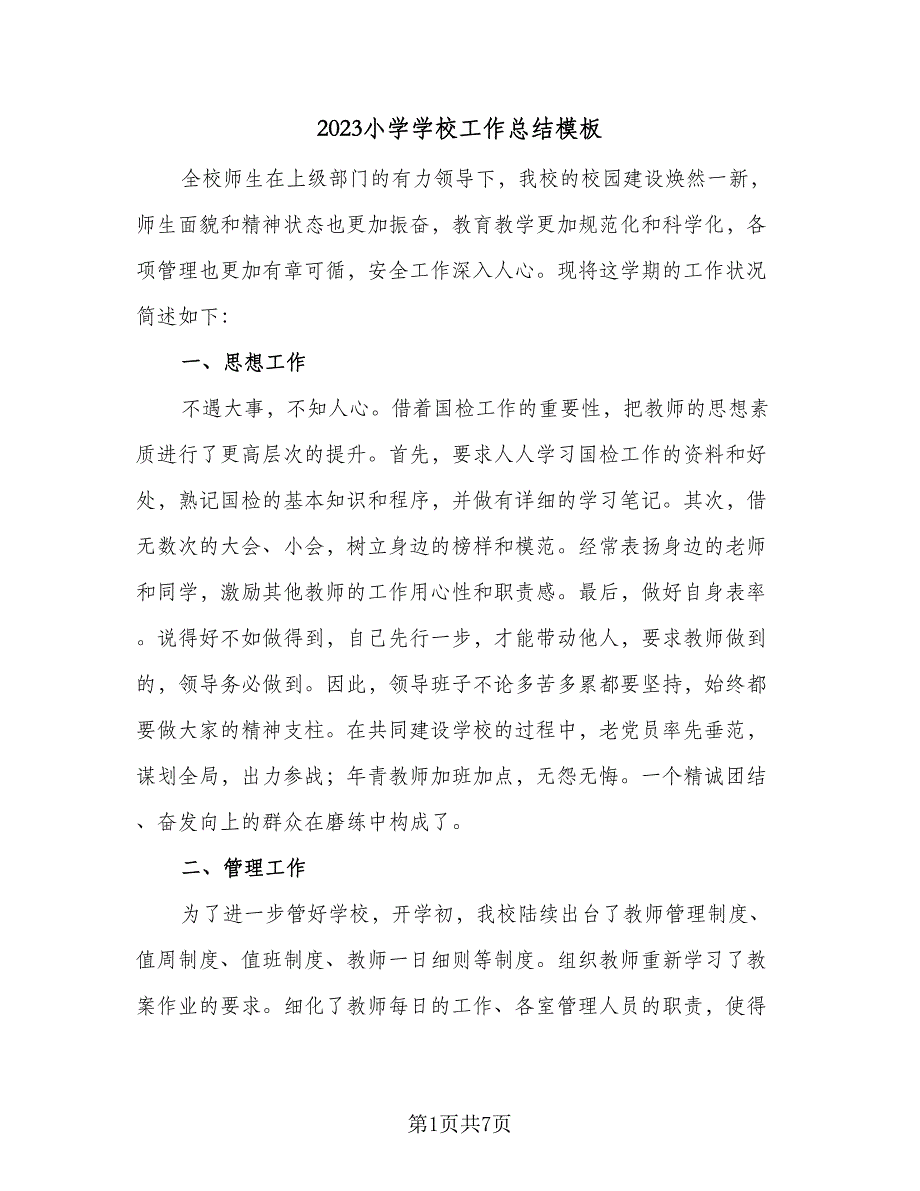 2023小学学校工作总结模板
全校师生在上级部门的有力领导下，我校的校园建设焕然一新，
师生面貌和精神状态也更加振奋，教育教学更加规范化和科学化，各
项管理也更加有章可循，安全工作深入人心。现将这学期的工作状况
简述如下：
一、思想工作
不遇大事，不知人心。借着国检工作的重要性，把教师的思想素
质进行了更高层次的提升。首先，要求人人学习国检工作的资料和好
处，熟记国检的基本知识和程序，并做有详细的学习笔记。其次，借
无数次的大会、小会，树立身边的榜样和模范。经常表扬身边的老师
和同学，激励其他教师的工作用心性和职责感。最后，做好自身表率
。说得好不如做得到，自己先行一步，才能带动他人，要求教师做到
的，领导务必做到。因此，领导班子不论多苦多累都要坚持，始终都
要做大家的精神支柱。在共同建设学校的过程中，老党员率先垂范，
谋划全局，出力参战；年青教师加班加点，无怨无悔。一个精诚团结
、奋发向上的群众在磨练中构成了。
二、管理工作
为了进一步管好学校，开学初，我校陆续出台了教师管理制度、
值周制度、值班制度、教师一日细则等制度。组织教师重新学习了教
案作业的要求。细化了教师每日的工作、各室管理人员的职责，使得
第1页共7页